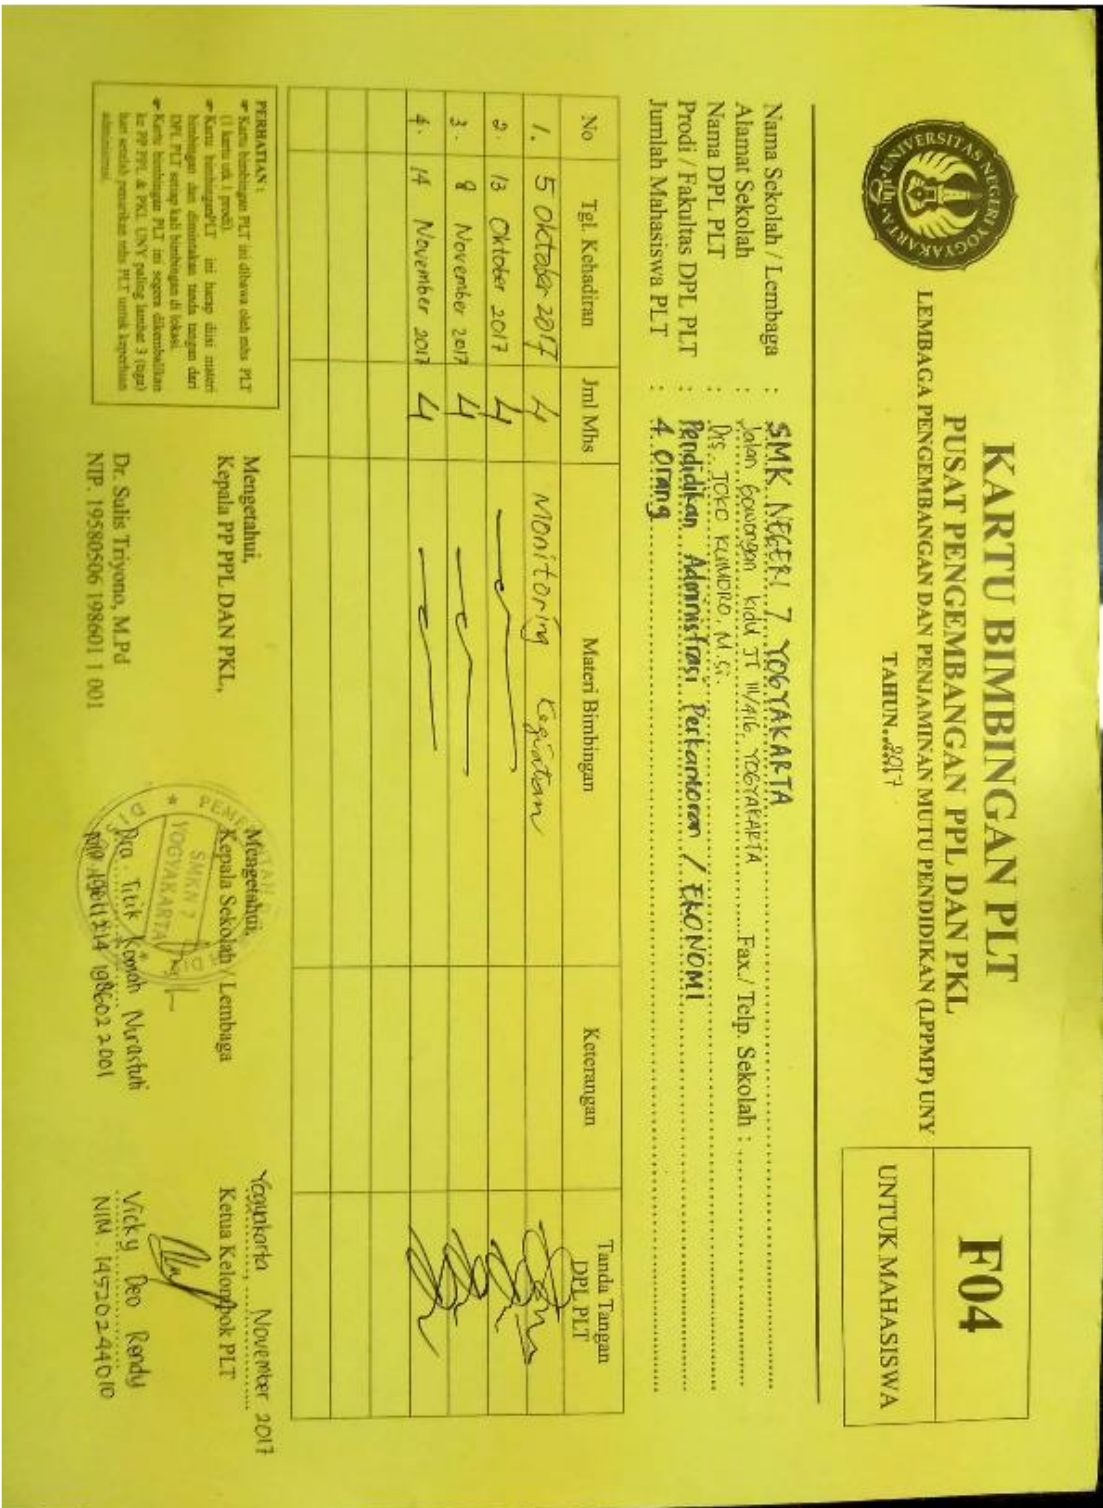 UNIVERSITAS NEGERI YOGYAKARTA
KARTU BIMBINGAN PLT
PUSAT PENGEMBANGAN PPL DAN PKL
LEMBAGA PENGEMBANGAN DAN PENJAMINAN MUTU PENDIDIKAN (LPPMP) UNY
TAHUN 2017
F04
UNTUK MAHASISWA
Nama Sekolah / Lembaga : SMK NEGERI 7 YOGYAKARTA
Alamat Sekolah : Jalan Gowongan Kidul JT III/416 YOGYAKARTA Fax./ Telp. Sekolah :
Nama DPL PLT : Drs. JOKO KUMORO, M.Si.
Prodi / Fakultas DPL PLT : Pendidikan Administrasi Perkantoran / EKONOMI
Jumlah Mahasiswa PLT : 4 Orang
No Tgl. Kehadiran Jml Mhs Materi Bimbingan Keterangan Tanda Tangan DPL PLT
1. 5 Oktober 2017 4 Monitoring Kegiatan
2. 13 Oktober 2017 4
3. 8 November 2017 4
4. 14 November 2017 4
PERHATIAN :
☞ Kartu bimbingan PLT ini dibawa oleh mhs PLT
(1 kartu utk 1 prodi).
☞ Kartu bimbinganPLT ini harap diisi materi
bimbingan dan dimintakan tanda tangan dari
DPL PLT setiap kali bimbingan di lokasi.
☞ Kartu bimbingan PLT ini segera dikembalikan
ke PP PPL & PKL UNY paling lambat 3 (tiga)
hari setelah penarikan mhs PLT untuk keperluan
administrasi.
Mengetahui,
Kepala PP PPL DAN PKL,
Dr. Sulis Triyono, M.Pd
NIP. 19580506 198601 1 001
Mengetahui,
Kepala Sekolah / Lembaga
SMKN 7
YOGYAKARTA
Dra. Titik Komah Nurastuti
NIP 19611214 198602 2001
Yogyakarta, November 2017
Ketua Kelompok PLT
Vicky Deo Rendy
NIM 14520244010